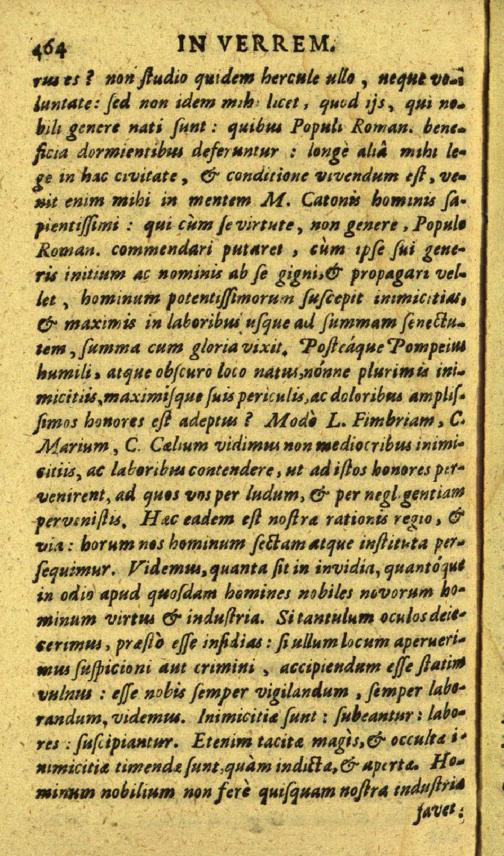 464 IN VERREM.
rus es? non studio quidem hercule ullo, neque vo-
luntate: sed non idem mihi licet, quod ijs, qui no-
bili genere nati sunt: quibus Populi Roman. bene-
ficia dormientibus deferuntur: longè aliâ mihi le-
ge in hac civitate, & conditione vivendum est, ve-
nit enim mihi in mentem M. Catonis hominis sa-
pientissimi: qui cùm se virtute, non genere, Populo
Roman. commendari putaret, cùm ipse sui gene-
ris initium ac nominis ab se gigni, & propagari vel-
let, hominum potentissimorum suscepit inimicitias,
& maximis in laboribus usque ad summam senectu-
tem, summa cum gloria vixit. Posteáque Pompeius
humili, atque obscuro loco natus, nónne plurimis ini-
micitiis, maximisque suis periculis, ac doloribus amplis-
simos honores est adeptus? Modò L. Fimbriam, C.
Marium, C. Cælium vidimus non mediocribus inimi-
citiis, ac laboribus contendere, ut ad istos honores per-
venirent, ad quos vos per ludum, & per negligentiam
pervenistis. Hæc eadem est nostra rationis regio, &
via: horum nos hominum sectam atque instituta per-
sequimur. Videmus, quanta sit in invidia, quantóque
in odio apud quosdam homines nobiles novorum ho-
minum virtus & industria. Si tantulum oculos deie-
cerimus, præstò esse insidias: si ullum locum aperueri-
mus suspicioni aut crimini, accipiendum esse statim
vulnus: esse nobis semper vigilandum, semper labo-
randum, videmus. Inimicitiæ sunt: subeantur: labo-
res: suscipiantur. Etenim tacitæ magis, & occultæ i-
nimicitiæ timendæ sunt, quàm indictæ, & apertæ. Ho-
minum nobilium non ferè quisquam nostra industria
favet: